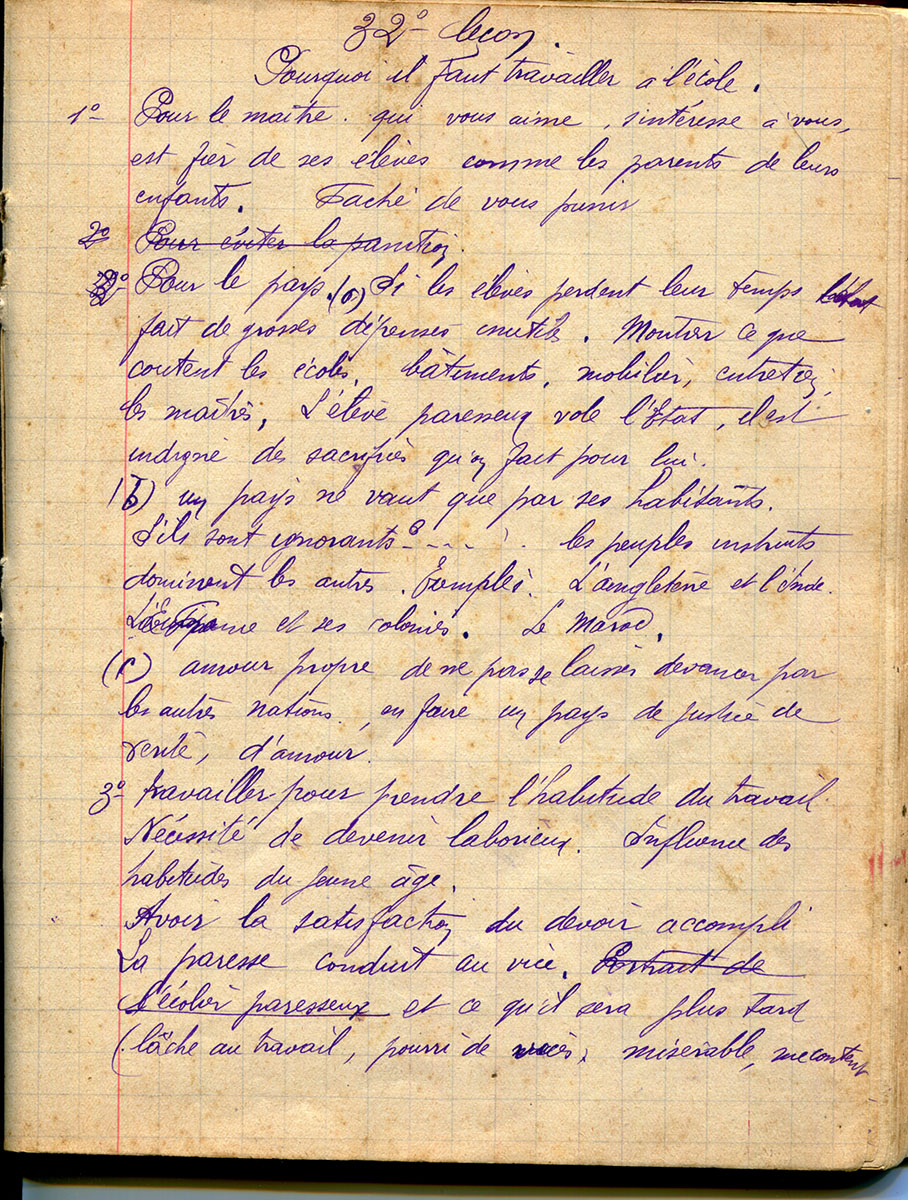 32° leçon.
Pourquoi il faut travailler à l'école.
1° Pour le maître. qui vous aime, s'intéresse à vous,
est fier de ses élèves comme les parents de leurs
enfants. Faché de vous punir
2° Pour éviter la punition.
2° Pour le pays. (a) Si les élèves perdent leur temps l'état
fait de grosses dépenses inutiles. Montrer ce que
coutent les écoles, bâtiments, mobilier, entretien,
les maîtres, L'élève paresseux vole l'Etat, il est
indigne des sacrifices qu'on fait pour lui.
(b) un pays ne vaut que par ses habitants.
S'ils sont ignorants - - - - les peuples instruits
dominent les autres. Exemples. L'angleterre et l'Inde.
et ses colonies. Le Maroc.
(c) amour propre de ne pas se laisser devancer par
les autres nations, en faire un pays de justice de
verité, d'amour.
3° travailler pour prendre l'habitude du travail.
Nécessité de devenir laborieux. Influence des
habitudes du jeune âge.
Avoir la satisfaction du devoir accompli
La paresse conduit au vice. Portrait de
l'écolier paresseux et ce qu'il sera plus tard
(lâche au travail, pourri de vices, misérable, mécontent